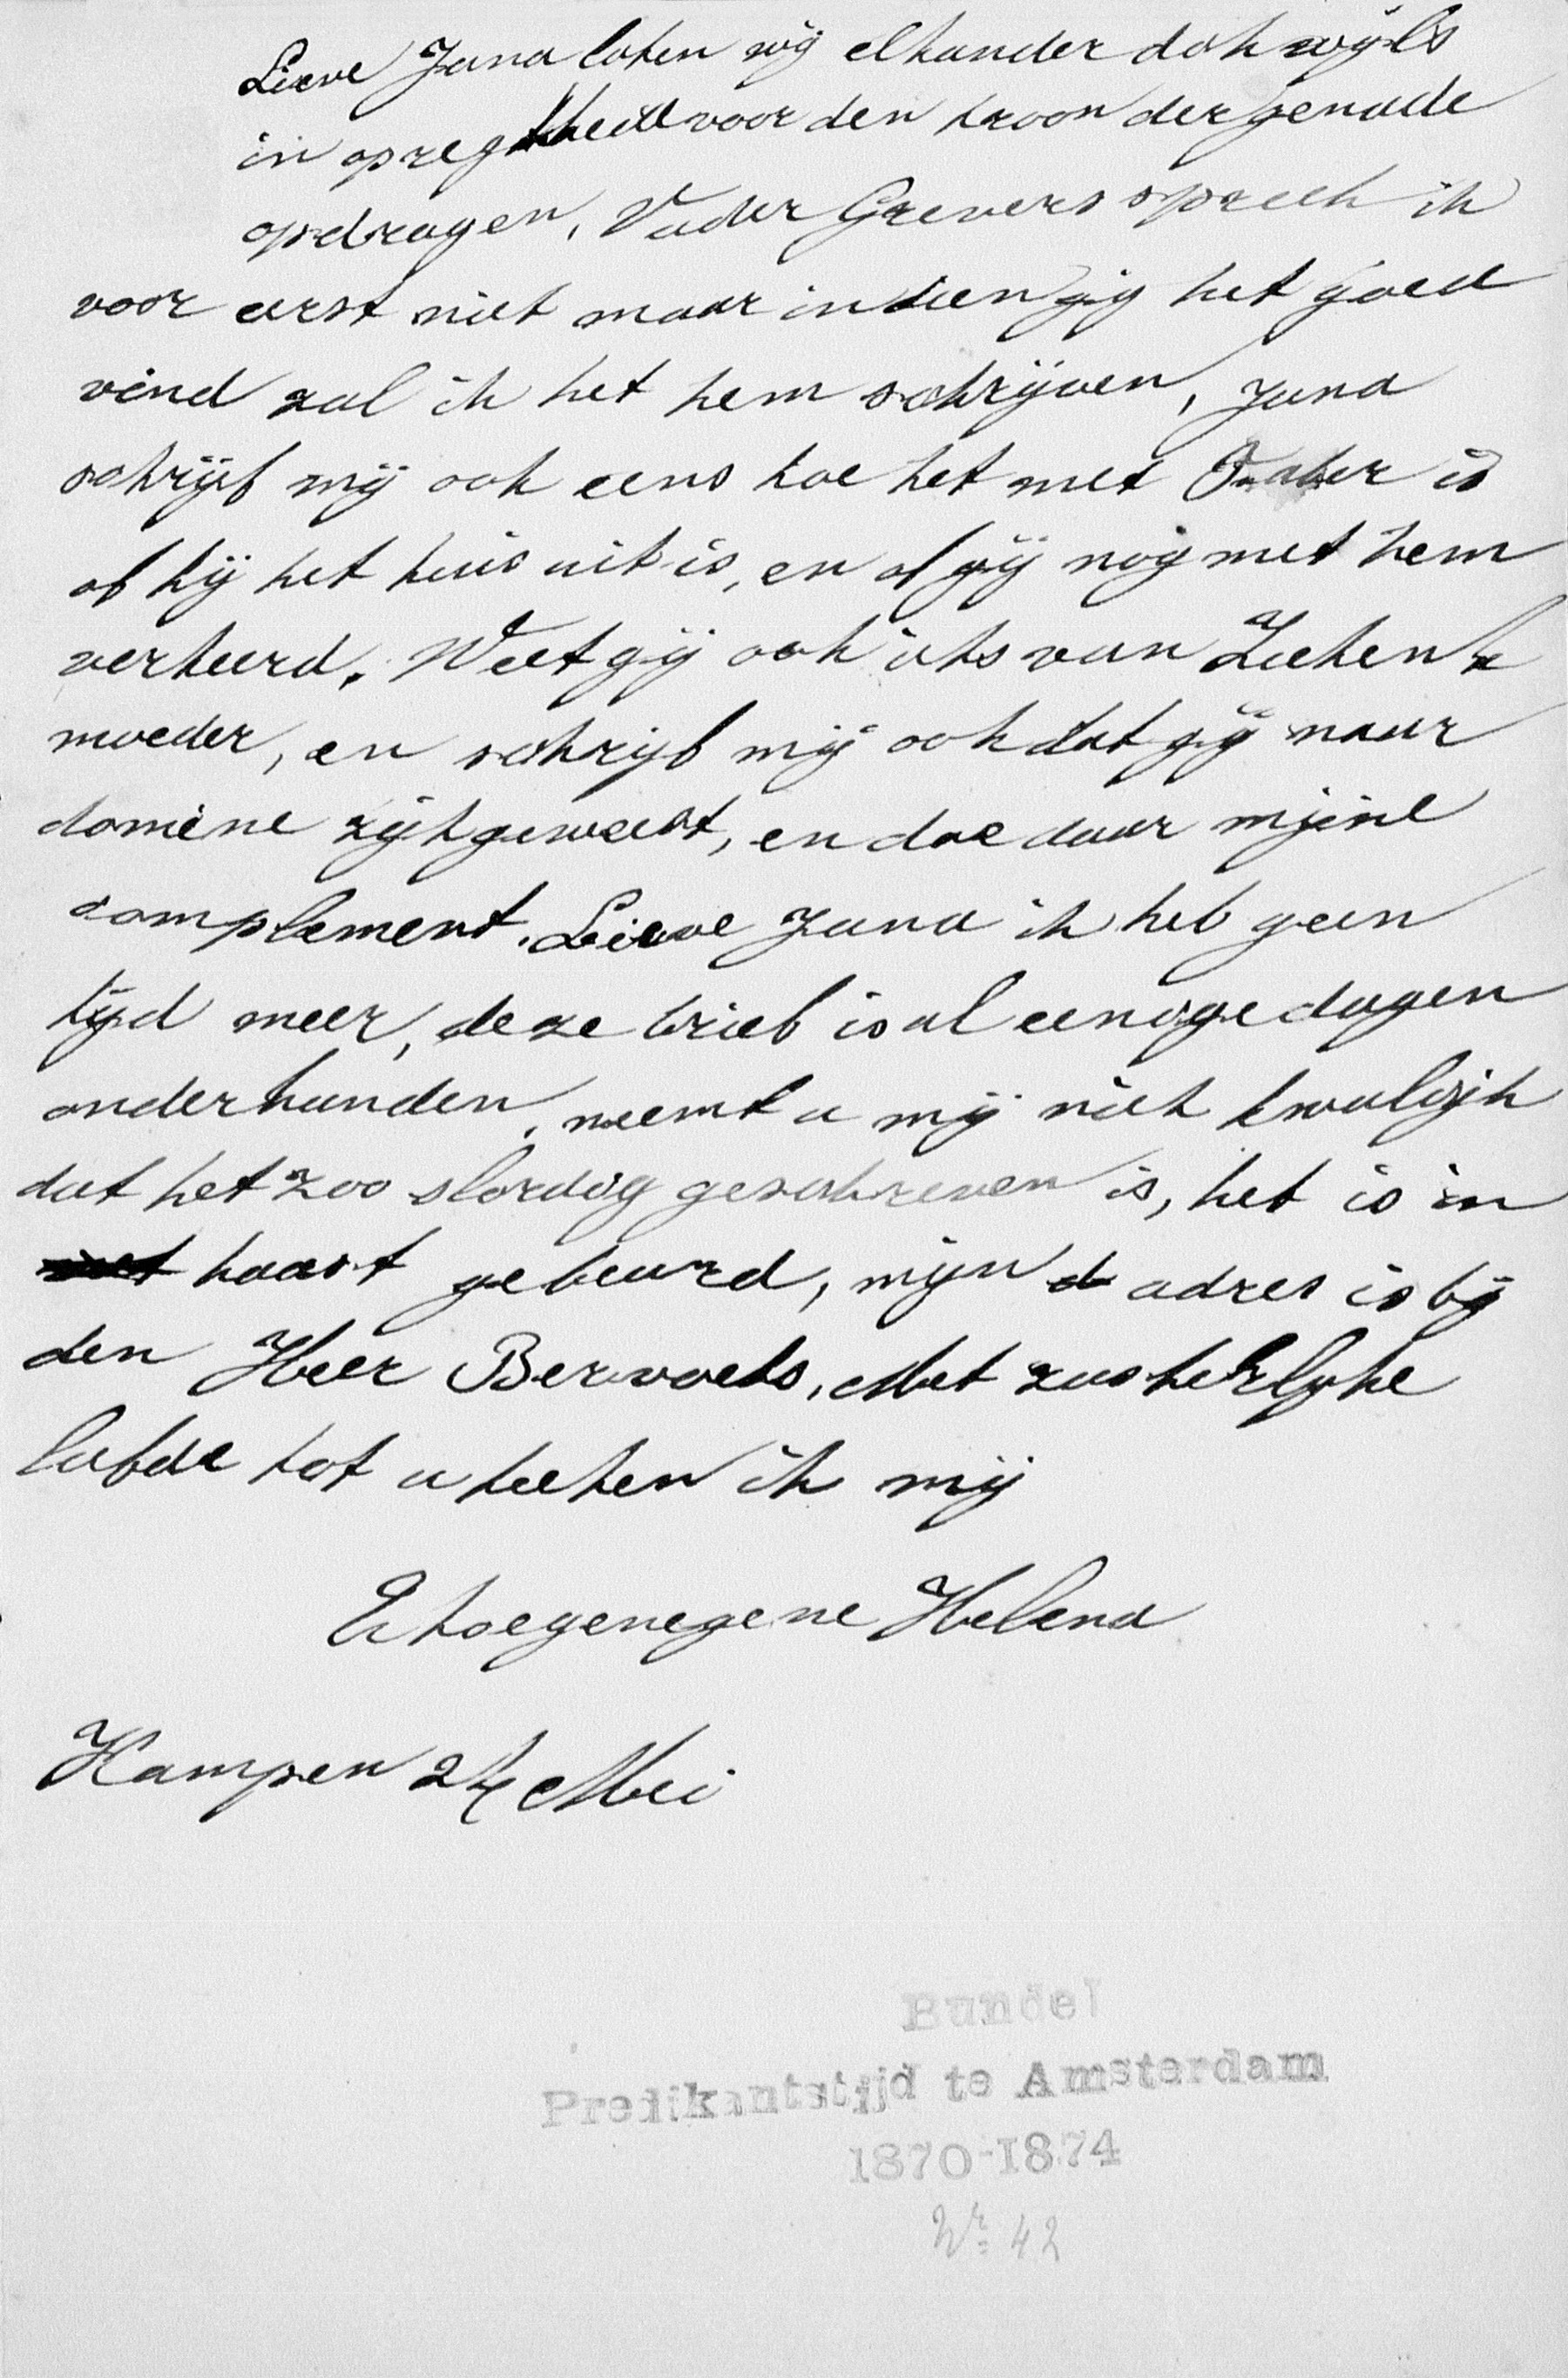 Lieve Jana laten wij elkander dakwijls
in opregtheid voor den troon der genade
opdragen, Vader Grevers spreek ik
voor eerst niet maar indien gij het goed
vind zal ik het hem schrijven, Jana
schrijf mij ook eens hoe het met Faber is
of hij het huis uit is, en of gij nog met hem
verkeerd. Weet gij ook iets van Zieken
moeder, en schrijf mij ook dat gij naar
domine zijt geweest, en doe daar mijne
complement. Lieve Jana ik heb geen
tijd meer, deze brief is al eenige dagen
onderhanden, neemt u mij niet kwalijk
dat het zoo slordig geschreven is, het is in
haast gebeurd, mijn adres is bij
den Heer Bervoets, Met zusterlijke
liefde tot u teeken ik mij
U toegenegene Helena
Kampen 24 Mei
Bundel
Predikantstijd te Amsterdam
1870-1874
Nr. 42